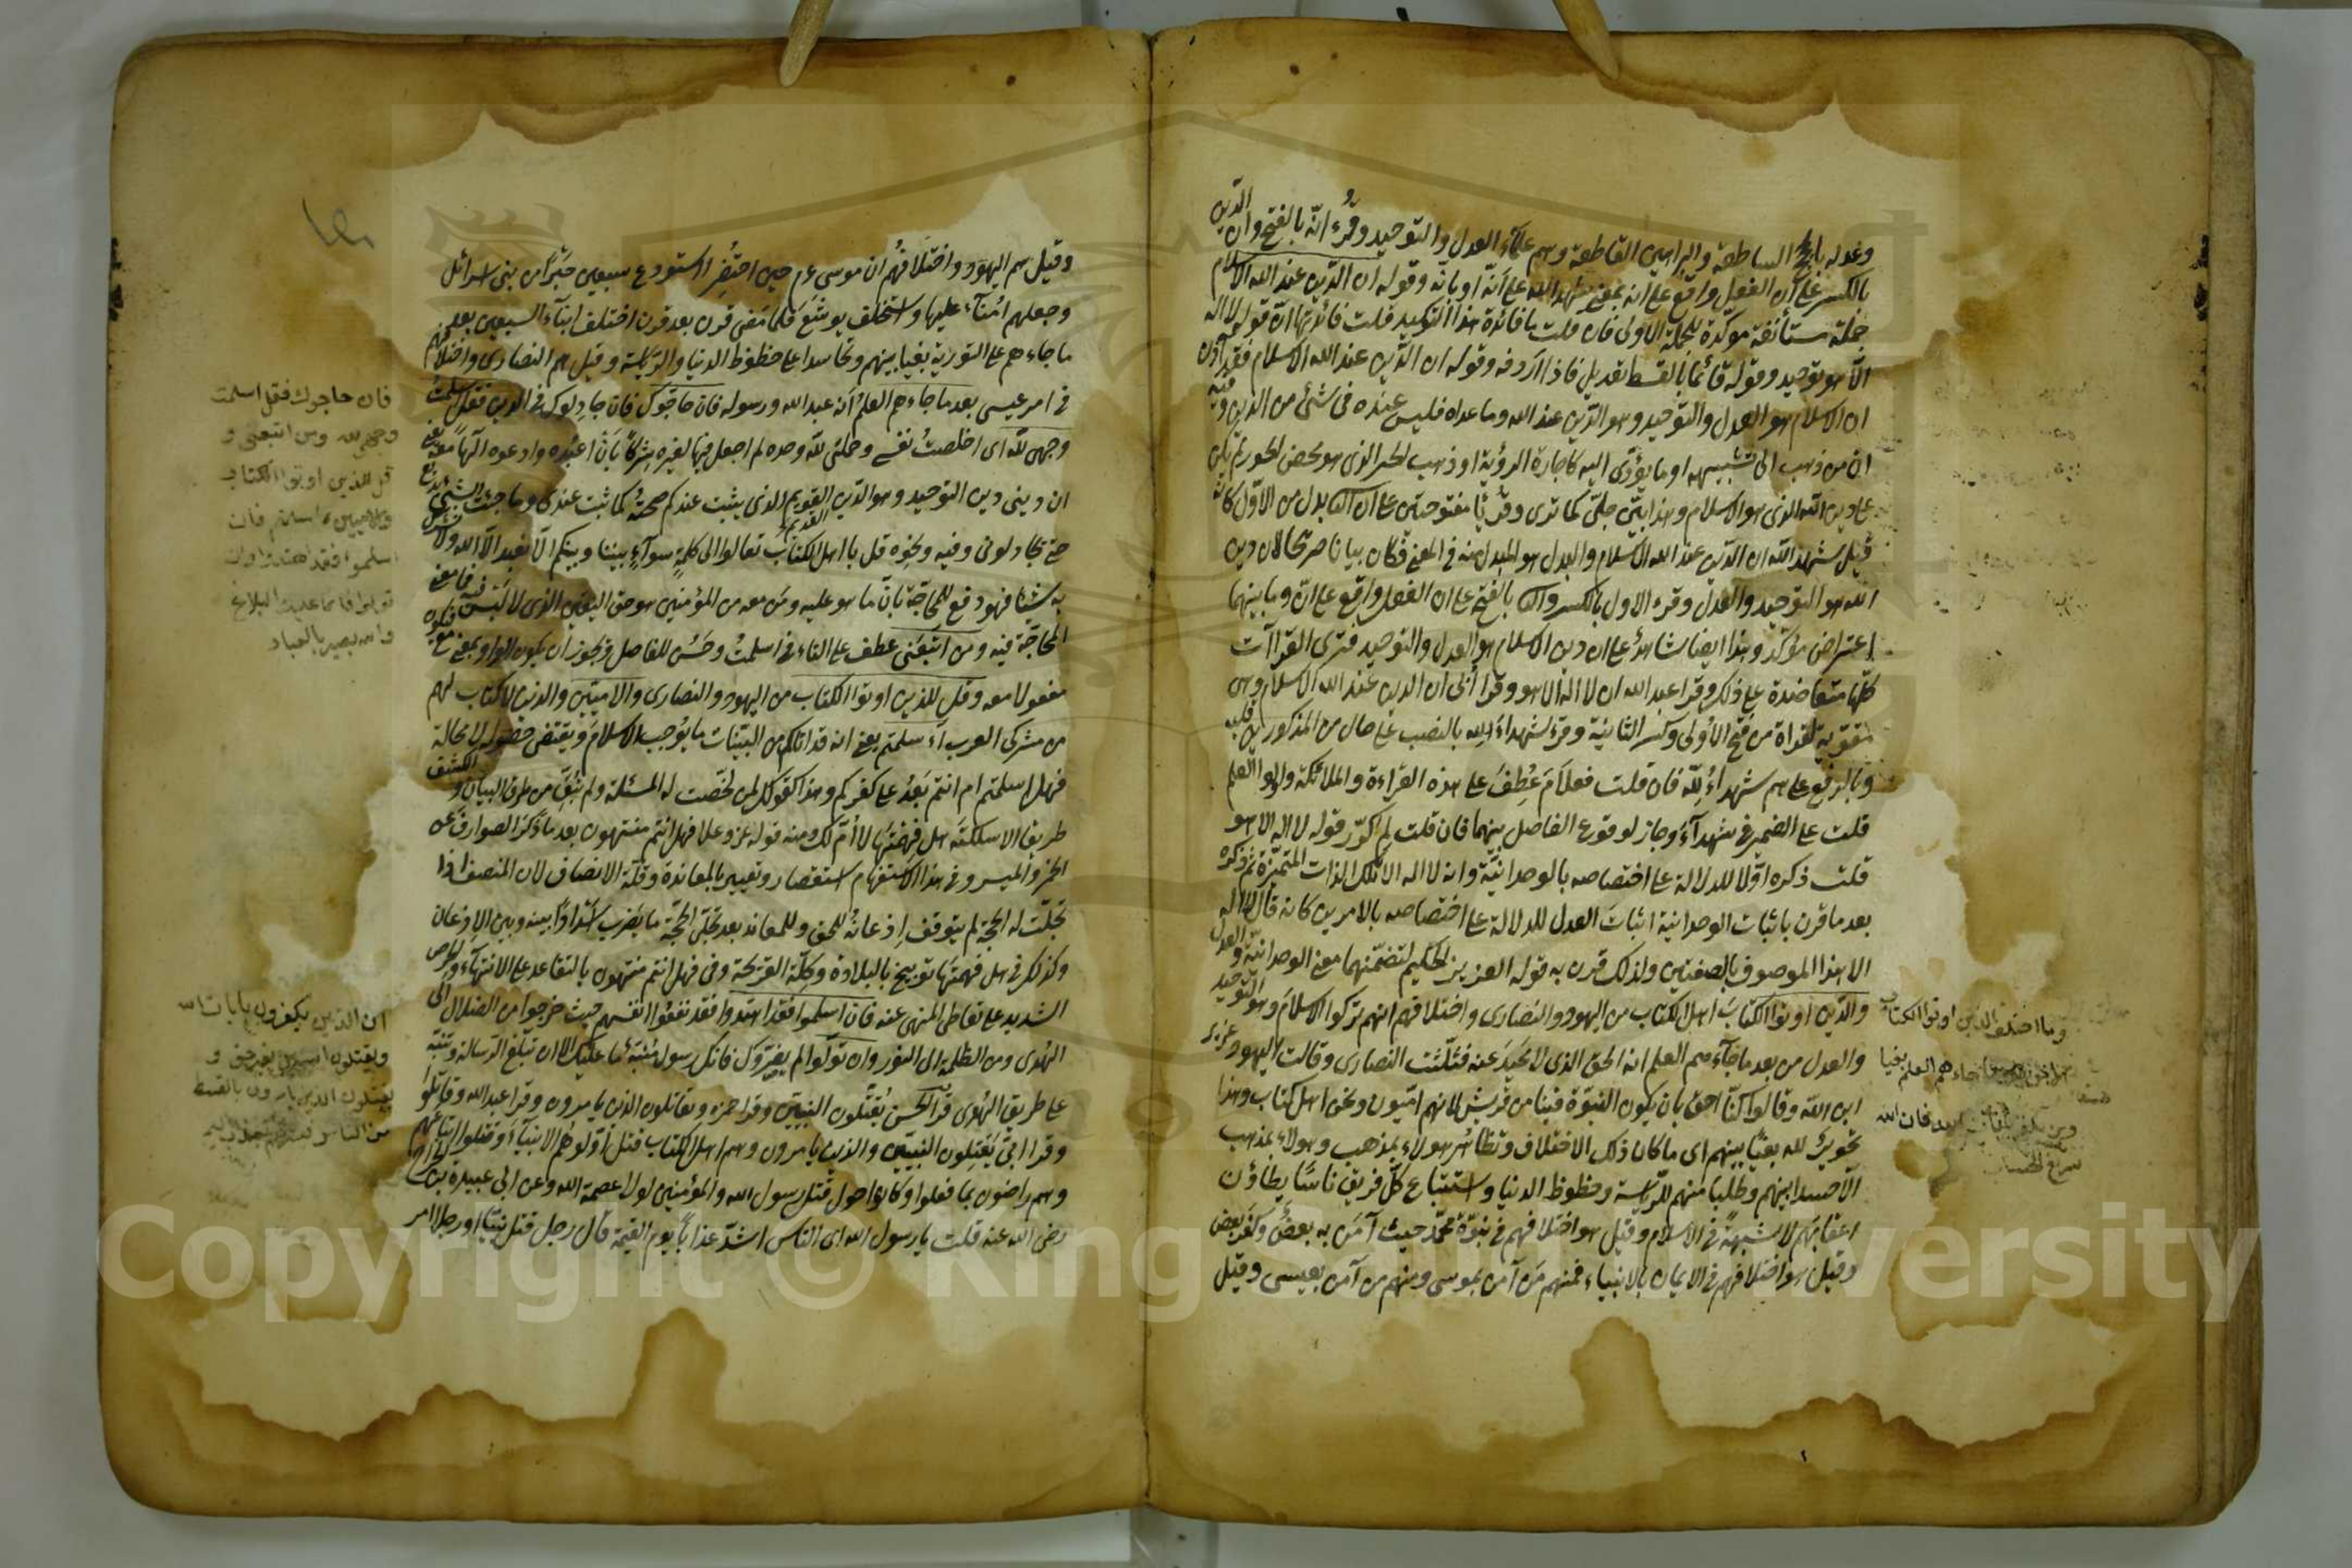 وعدله بالحجج الساطعة والبراهين القاطعة وهم علماء العدل والتوحيد وقرء انه بالفتح وان الدين
بالكسر على ان الفعل واقع على انه بمعنى شهد الله على انه او بانه وقوله ان الدين عند الله الاسلام
جملة مستأنفة مؤكدة للجملة الاولى فان قلت ما فائدة هذا التوكيد قلت فائدته ان قوله لا اله
الا هو توحيد وقوله قائما بالقسط تعديل فاذا اردفه وقوله ان الدين عند الله الاسلام فقد آذن
ان الاسلام هو العدل والتوحيد وهو الدين عند الله وما عداه فليس عنده في شئ من الدين وفيه
ان من ذهب الى تشبيه او ما يؤدى اليه كاجازة الرؤية او ذهب الى الجبر الذى هو محض الجور لم يكن
على دين الله الذى هو الاسلام وهذا بين جلى كما ترى وقرئا مفتوحتين على ان الثانى بدل من الاول كانه
قيل شهد الله ان الدين عند الله الاسلام والبدل هو المبدل منه في المعنى فكان بيانا صريحا لان دين
الله هو التوحيد والعدل وقرء الاول بالكسر والثانى بالفتح على ان الفعل واقع على ان وما بينهما
اعتراض مؤكد وهذا ايضا شاهد على ان دين الاسلام هو العدل والتوحيد فترى القراآت
كلها متعاضدة على ذلك وقرا عبد الله ان لا اله الا هو وقرا أبى ان الدين عند الله الاسلام وهى
مقوية لقراة من فتح الاولى وكسر الثانية وقرء شهداء لله بالنصب على حال من المذكورين قبله
وبالرفع على هم شهداء لله فان قلت فعلام عطف على هذه القراءة والملائكة واولوا العلم
قلت على الضمير في شهداء وجاز لوقوع الفاصل بينهما فان قلت لم كرر قوله لا اله الا هو
قلت ذكره اولا للدلالة على اختصاصه بالوحدانية وانه لا اله الا تلك الذات المتميزة ثم ذكره
بعد ما قرن باثبات الوحدانية اثبات العدل للدلالة على اختصاصه بالامرين كانه قال لا اله
الا هذا الموصوف بالصفتين ولذلك قرن به قوله العزيز الحكيم لتضمنهما معنى الوحدانية والعدل
والذين اوتوا الكتاب اهل الكتاب من اليهود والنصارى واختلافهم انهم تركوا الاسلام وهو التوحيد
والعدل من بعد ما جاءهم العلم انه الحق الذى لا محيد عنه فثلثت النصارى وقالت اليهود عزير
ابن الله وقالوا كنا احق بان يكون النبوة فينا من قريش لانهم اميون ونحن اهل كتاب وهذا
تجوير لله بغيا بينهم اى ما كان ذلك الاختلاف وتظاهر هولاء بمذهب وهولاء بمذهب
الا حسدا بينهم وطلبا منهم للرياسة وحظوظ الدنيا واستتباع كل فريق ناسا يطاؤن
اعقابهم لا شبهة في الاسلام وقيل هو اختلافهم في نبوة محمد حيث آمن به بعض وكفر بعض
وقيل هو اختلافهم في الايمان بالانبياء فمنهم من آمن بموسى ومنهم من آمن بعيسى وقيل
وما اختلف الذين اوتوا الكتاب
جاءهم العلم بغيا
فان الله
سريع الحساب
وقيل هم اليهود واختلافهم ان موسى عم حين احتضر استودع سبعين حبرا من بنى اسرائل
وجعلهم امناء عليها واستخلف يوشع فلما مضى قرن بعد قرن اختلف ابناء السبعين بعد
ما جاءهم على التورية بغيا بينهم وتحاسدا على حظوظ الدنيا والرياسة وقيل هم النصارى واختلافهم
في امر عيسى بعد ما جاءهم العلم انه عبد الله ورسوله فان حاجوك فان جادلوك في الدين فقل اسلمت
وجهى لله اى اخلصت نفسى وجملتى لله وحده لم اجعل فيها لغيره شركا بان اعبده وادعوه الها معه يعنى
ان دينى دين التوحيد وهو الدين القويم الذى يثبت عندكم صحته كما ثبت عندى وما جئت بشئ بديع
حتى تجادلونى وفيه ونحوه قل يا اهل الكتاب تعالوا الى كلمة سوآء بيننا وبينكم الا نعبد الا الله ولا نشرك
به شيئا فهو دفع للمحاجة بان ما هو عليه ومن معه من المؤمنين هو حق اليقين الذى لا لبس فيه فما معنى
المحاجة فيه ومن اتبعنى عطف على التاء في اسلمت وحسن للفاصل ويجوز ان يكون الواو بمعنى مع فيكون
مفعولا معه وقل للذين اوتوا الكتاب من اليهود والنصارى والاميين والذين لا كتاب لهم
من مشركى العرب أاسلمتم يعنى انه قد اتاكم من البينات ما يوجب الاسلام ويقتضى حصوله لا محالة
فهل اسلمتم ام انتم بعد على كفركم وهذا كقولك لمن لخصت له المسئلة ولم تبق من طرق البيان والكشف
طريقا الا سلكته هل فهمتها لا أم لك ومنه قوله عز وعلا فهل انتم منتهون بعد ما ذكر الصوارف عن
الخمر والميسر وفي هذا الاستفهام استقصار وتعيير بالمعاندة وقلة الانصاف لان المنصف اذا
تجلت له الحجة لم يتوقف اذعانه للحق وللمعاند بعد تجلى الحجة ما يضرب اسدادا بينه وبين الاذعان
وكذلك في هل فهمتها توبيخ بالبلادة وكلة القريحة وفي فهل انتم منتهون بالتقاعد على الانتهاء والحرص
الشديد على تعاطى المنهى عنه فان اسلموا فقد اهتدوا فقد نفعوا انفسهم حيث خرجوا من الضلال الى
الهدى ومن الظلمة الى النور وان تولوا لم يضروك فانك رسول منبه ما عليك الا ان تبلغ الرسالة وتنبه
على طريق الهدى قرا الحسن يقتلون النبيين وقرا حمزه ويقاتلون الذين يامرون وقرا عبد الله وقاتلوا
وقرا ابى يقتلون النبيين والذين يامرون وهم اهل الكتاب قتل اولوهم الانبياء وقتلوا اتباعهم
وهم راضون بما فعلوا وكانوا حول قتل رسول الله والمؤمنين لولا عصمة الله وعن ابى عبيدة بن الجراح
رضى الله عنه قلت يا رسول الله اى الناس اشد عذابا يوم القيمة قال رجل قتل نبيا او رجلا امر
فان حاجوك فقل اسلمت
وجهى لله ومن اتبعنى و
قل للذين اوتوا الكتاب
والاميين ءاسلمتم فان
اسلموا فقد اهتدوا وان
تولوا فانما عليك البلاغ
والله بصير بالعباد
ان الذين يكفرون بايات الله
ويقتلون النبيين بغير حق و
يقتلون الذين يامرون بالقسط
من الناس فبشرهم بعذاب اليم
Copyright © King Saud University